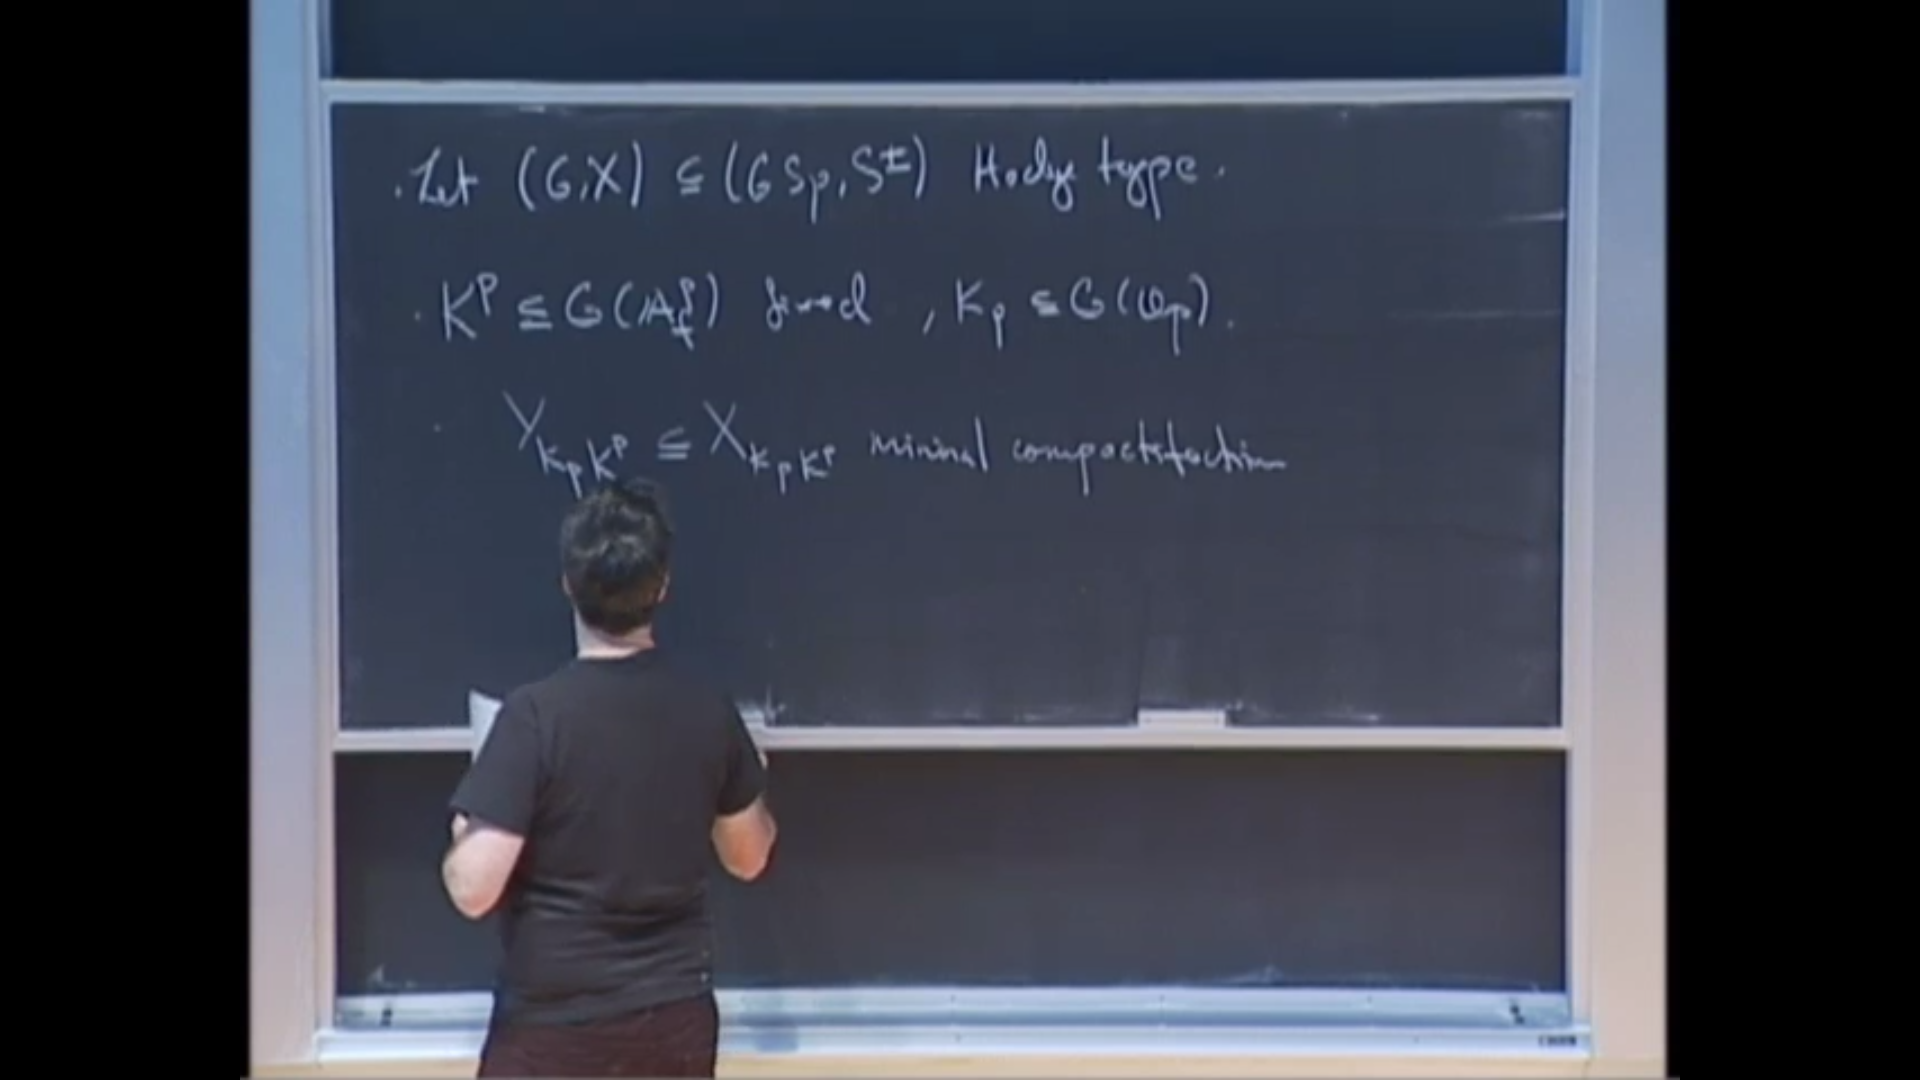 . Let (G,X) ⊆ (GSp, S^±) Hodge type.
. K^p ⊆ G(A_f^p) fixed , K_p ⊆ G(Q_p).
. Y_{K_p K^p} ⊆ X_{K_p K^p} minimal compactification